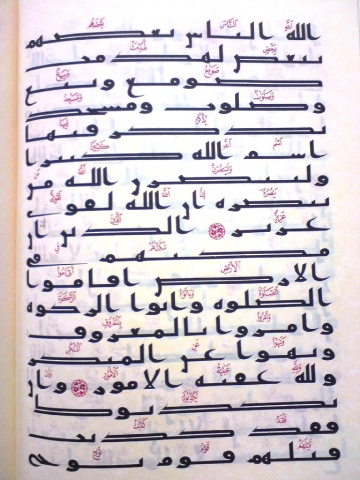 الله الناس بعضهم
ببعض لهدمت
صومع وبيع
وصلوت ومسجد
يذكر فيها
اسم الله كثيرا
ولينصرن الله من
ينصره ان الله لقوى
عزيز الذين ان
مكنهم فى
الارض اقاموا
الصلوه واتوا الزكوه
وامروا بالمعروف
ونهوا عن المنكر
ولله عقبه الامور وان
يكذبوك
فقد كذبت
قبلهم قوم نوح